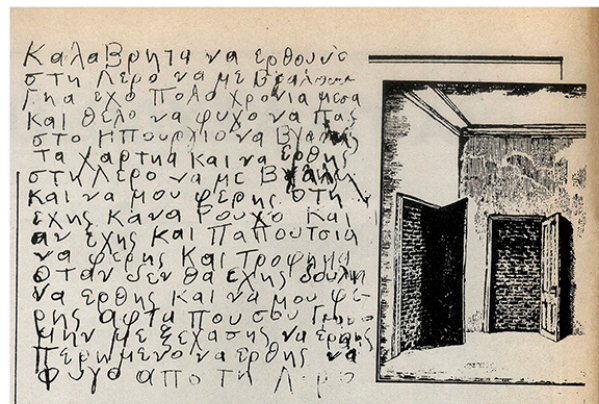 Καλαβρητα να ερθουνε
στη Λερο να με βγαλουνε
Γηα εχο Πολα χρονια μεσα
Και θελο να φυγο να πας
στο ηπουργιο να βγαλης
τα χαρτηα Και να ερθης
στη Λερο να με
και να μου φερης οτη
εχης κανα ρουχο και
αν εχης και παπουτσια
να φερης και τροφημα
οταν δεν θα εχης δουλια
να ερθης και να μου φε-
ρης αφτα που σου
μην με ξεχασης να ερθης
περημενο να ερθης να
φυγο απο τη Λερο